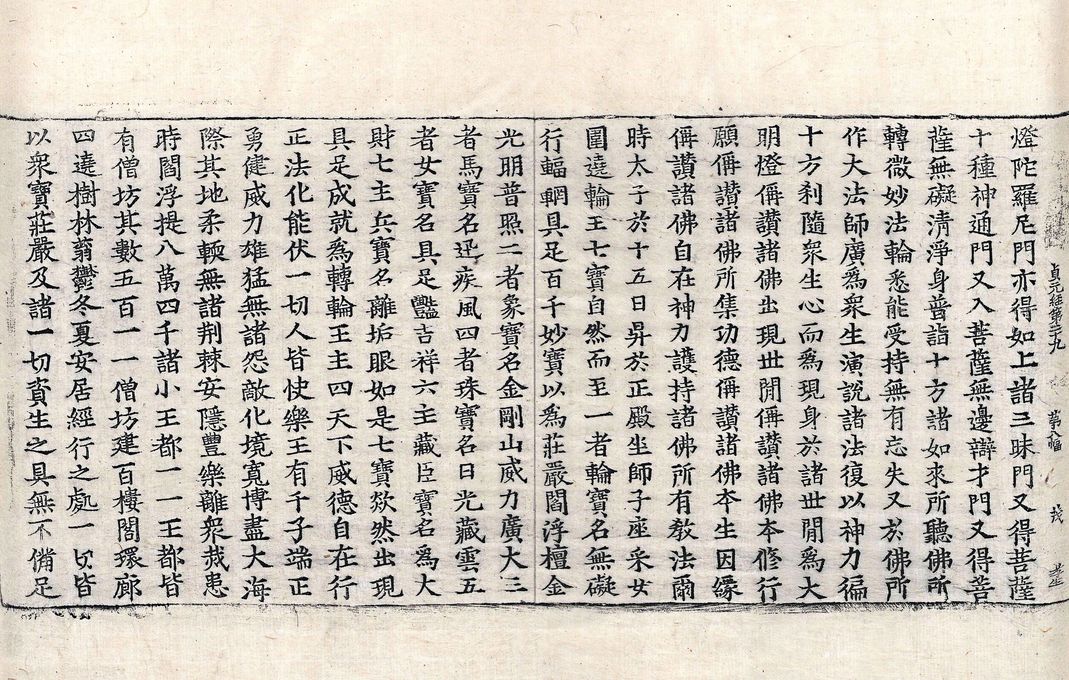 貞元經第三十九
燈陀羅尼門亦得如上諸三昧門又得菩薩
十種神通門又入菩薩無邊辯才門又得菩
薩無礙清淨身普詣十方諸如來所聽佛所
轉微妙法輪悉能受持無有忘失又於佛所
作大法師廣爲衆生演說諸法復以神力徧
十方刹隨衆生心而爲現身於諸世間爲大
明燈偁讃諸佛出現世間偁讃諸佛本修行
願偁讃諸佛所集功德偁讃諸佛本生因緣
偁讃諸佛自在神力護持諸佛所有教法爾
時太子於十五日昇於正殿坐師子座采女
圍遶輪王七寶自然而至一者輪寶名無礙
行輻輞具足百千妙寶以爲莊嚴閻浮檀金
光明普照二者象寶名金剛山威力廣大三
者馬寶名迅疾風四者珠寶名日光藏雲五
者女寶名具足豔吉祥六主藏臣寶名爲大
財七主兵寶名離垢眼如是七寶欻然出現
具足成就爲轉輪王主四天下威德自在行
正法化能伏一切人皆快樂王有千子端正
勇健威力雄猛無諸怨敵化境寬博盡大海
際其地柔輭無諸荆棘安隱豐樂離衆烖患
時閻浮提八萬四千諸小王都一一王都皆
有僧坊其數五百一一僧坊建百樓閣環廊
四遶樹林蓊鬱冬夏安居經行之處一切皆
以衆寶莊嚴及諸一切資生之具無不備足